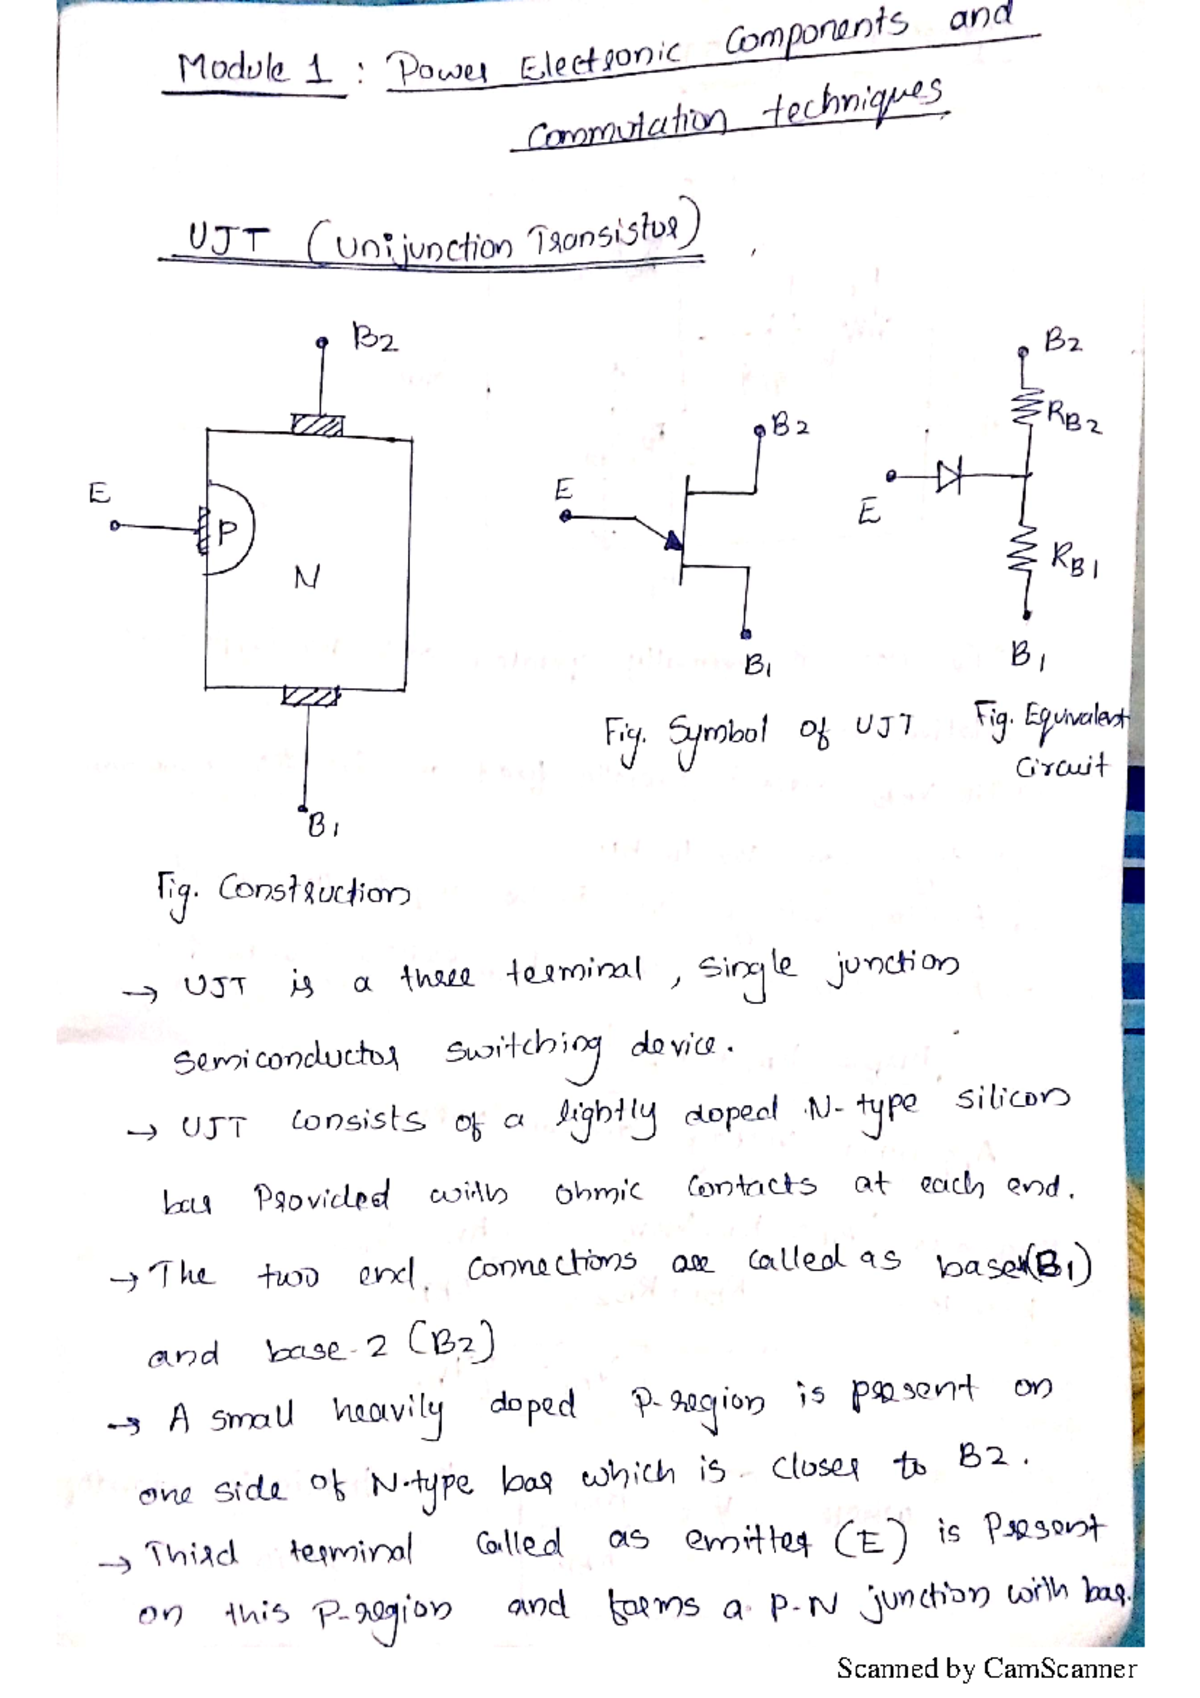 Module 1 : Power Electronic Components and
Commutation techniques
UJT (Unijunction Transistor)
B2
E
P
N
B1
Fig. Construction
E
B2
B1
Fig. Symbol of UJT
B2
RB2
E
RB1
B1
Fig. Equivalent
Circuit
→ UJT is a three terminal, single junction
semiconductor switching device.
→ UJT consists of a lightly doped N-type silicon
bar Provided with ohmic contacts at each end.
→ The two end connections are called as base1(B1)
and base-2 (B2)
→ A small heavily doped P-region is present on
one side of N-type bar which is closer to B2.
→ Third terminal called as emitter (E) is Present
on this P-region and forms a P-N junction with bar.
Scanned by CamScanner